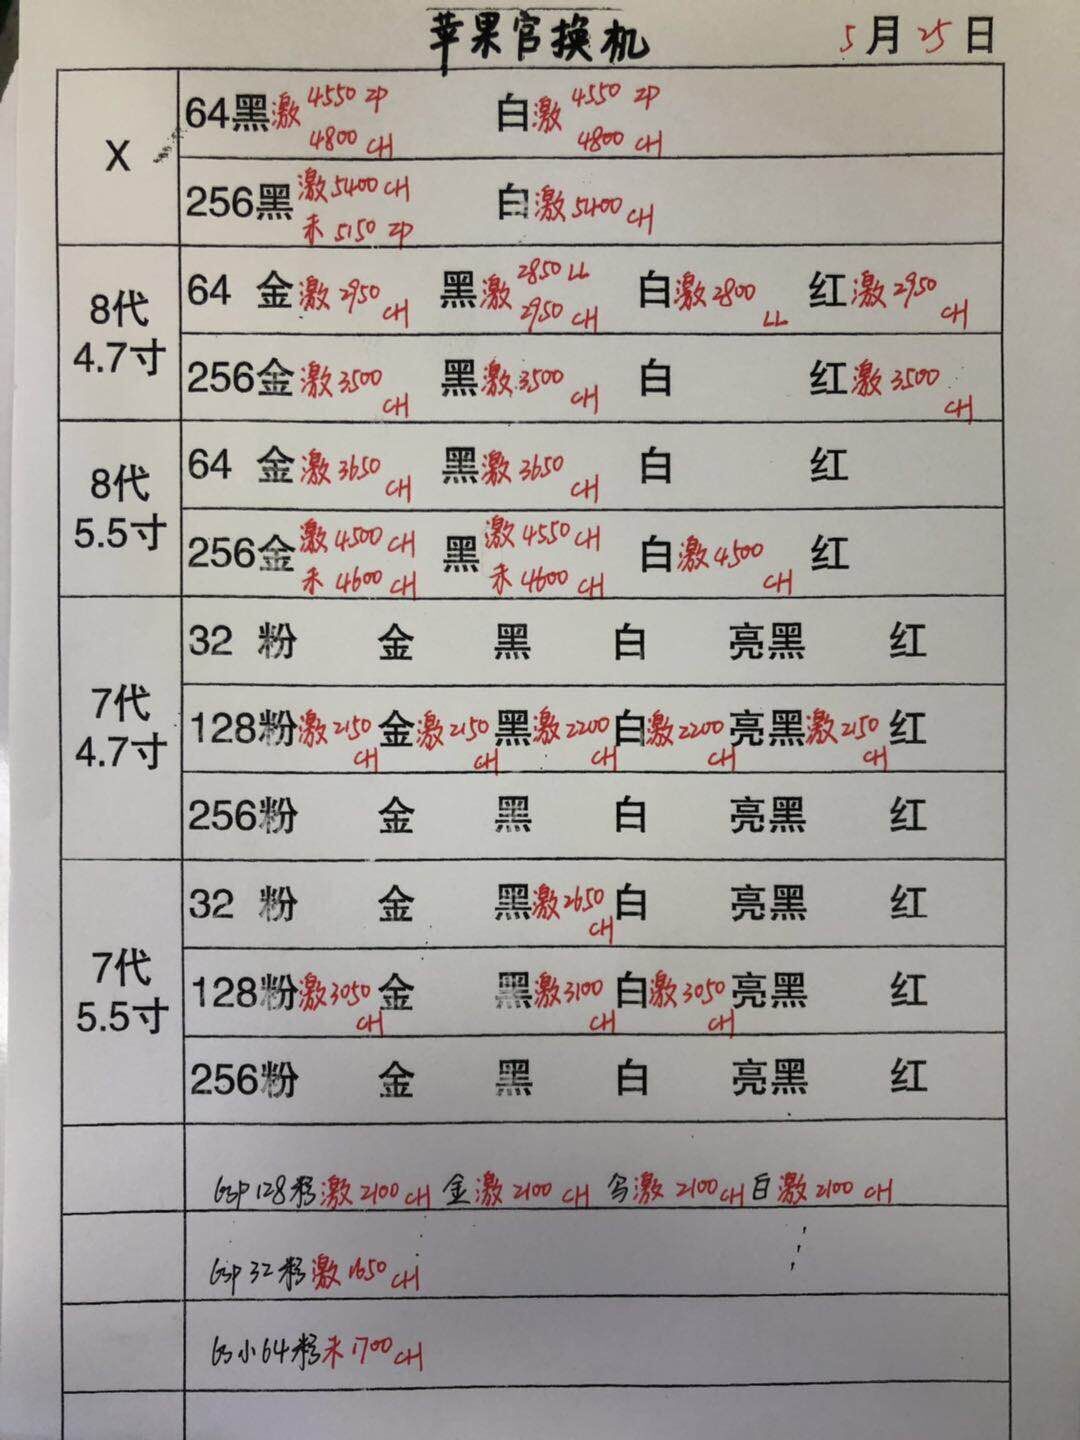 苹果官换机 5月25日
X
64黑激4550 ZP 白激4550 ZP
4800 CH 4800 CH
256黑激5400 CH 白激5400 CH
未5150 ZP
8代
4.7寸
64 金激2950 CH 黑激2850 LL 白激2800 LL 红激2950 CH
2950 CH
256金激3500 CH 黑激3500 CH 白 红激3500 CH
8代
5.5寸
64 金激3650 CH 黑激3650 CH 白 红
256金激4500 CH 黑激4550 CH 白激4500 CH 红
未4600 CH 未4600 CH
7代
4.7寸
32 粉 金 黑 白 亮黑 红
128粉激2150 CH 金激2150 CH 黑激2200 CH 白激2200 CH 亮黑激2150 CH 红
256粉 金 黑 白 亮黑 红
7代
5.5寸
32 粉 金 黑激2650 CH 白 亮黑 红
128粉激3050 CH 金 黑激3100 CH 白激3050 CH 亮黑 红
256粉 金 黑 白 亮黑 红
6sp 128粉激2100 CH 金激2100 CH 激2100 CH 白激2100 CH
6sp 32粉激1650 CH
6s小64粉未1700 CH